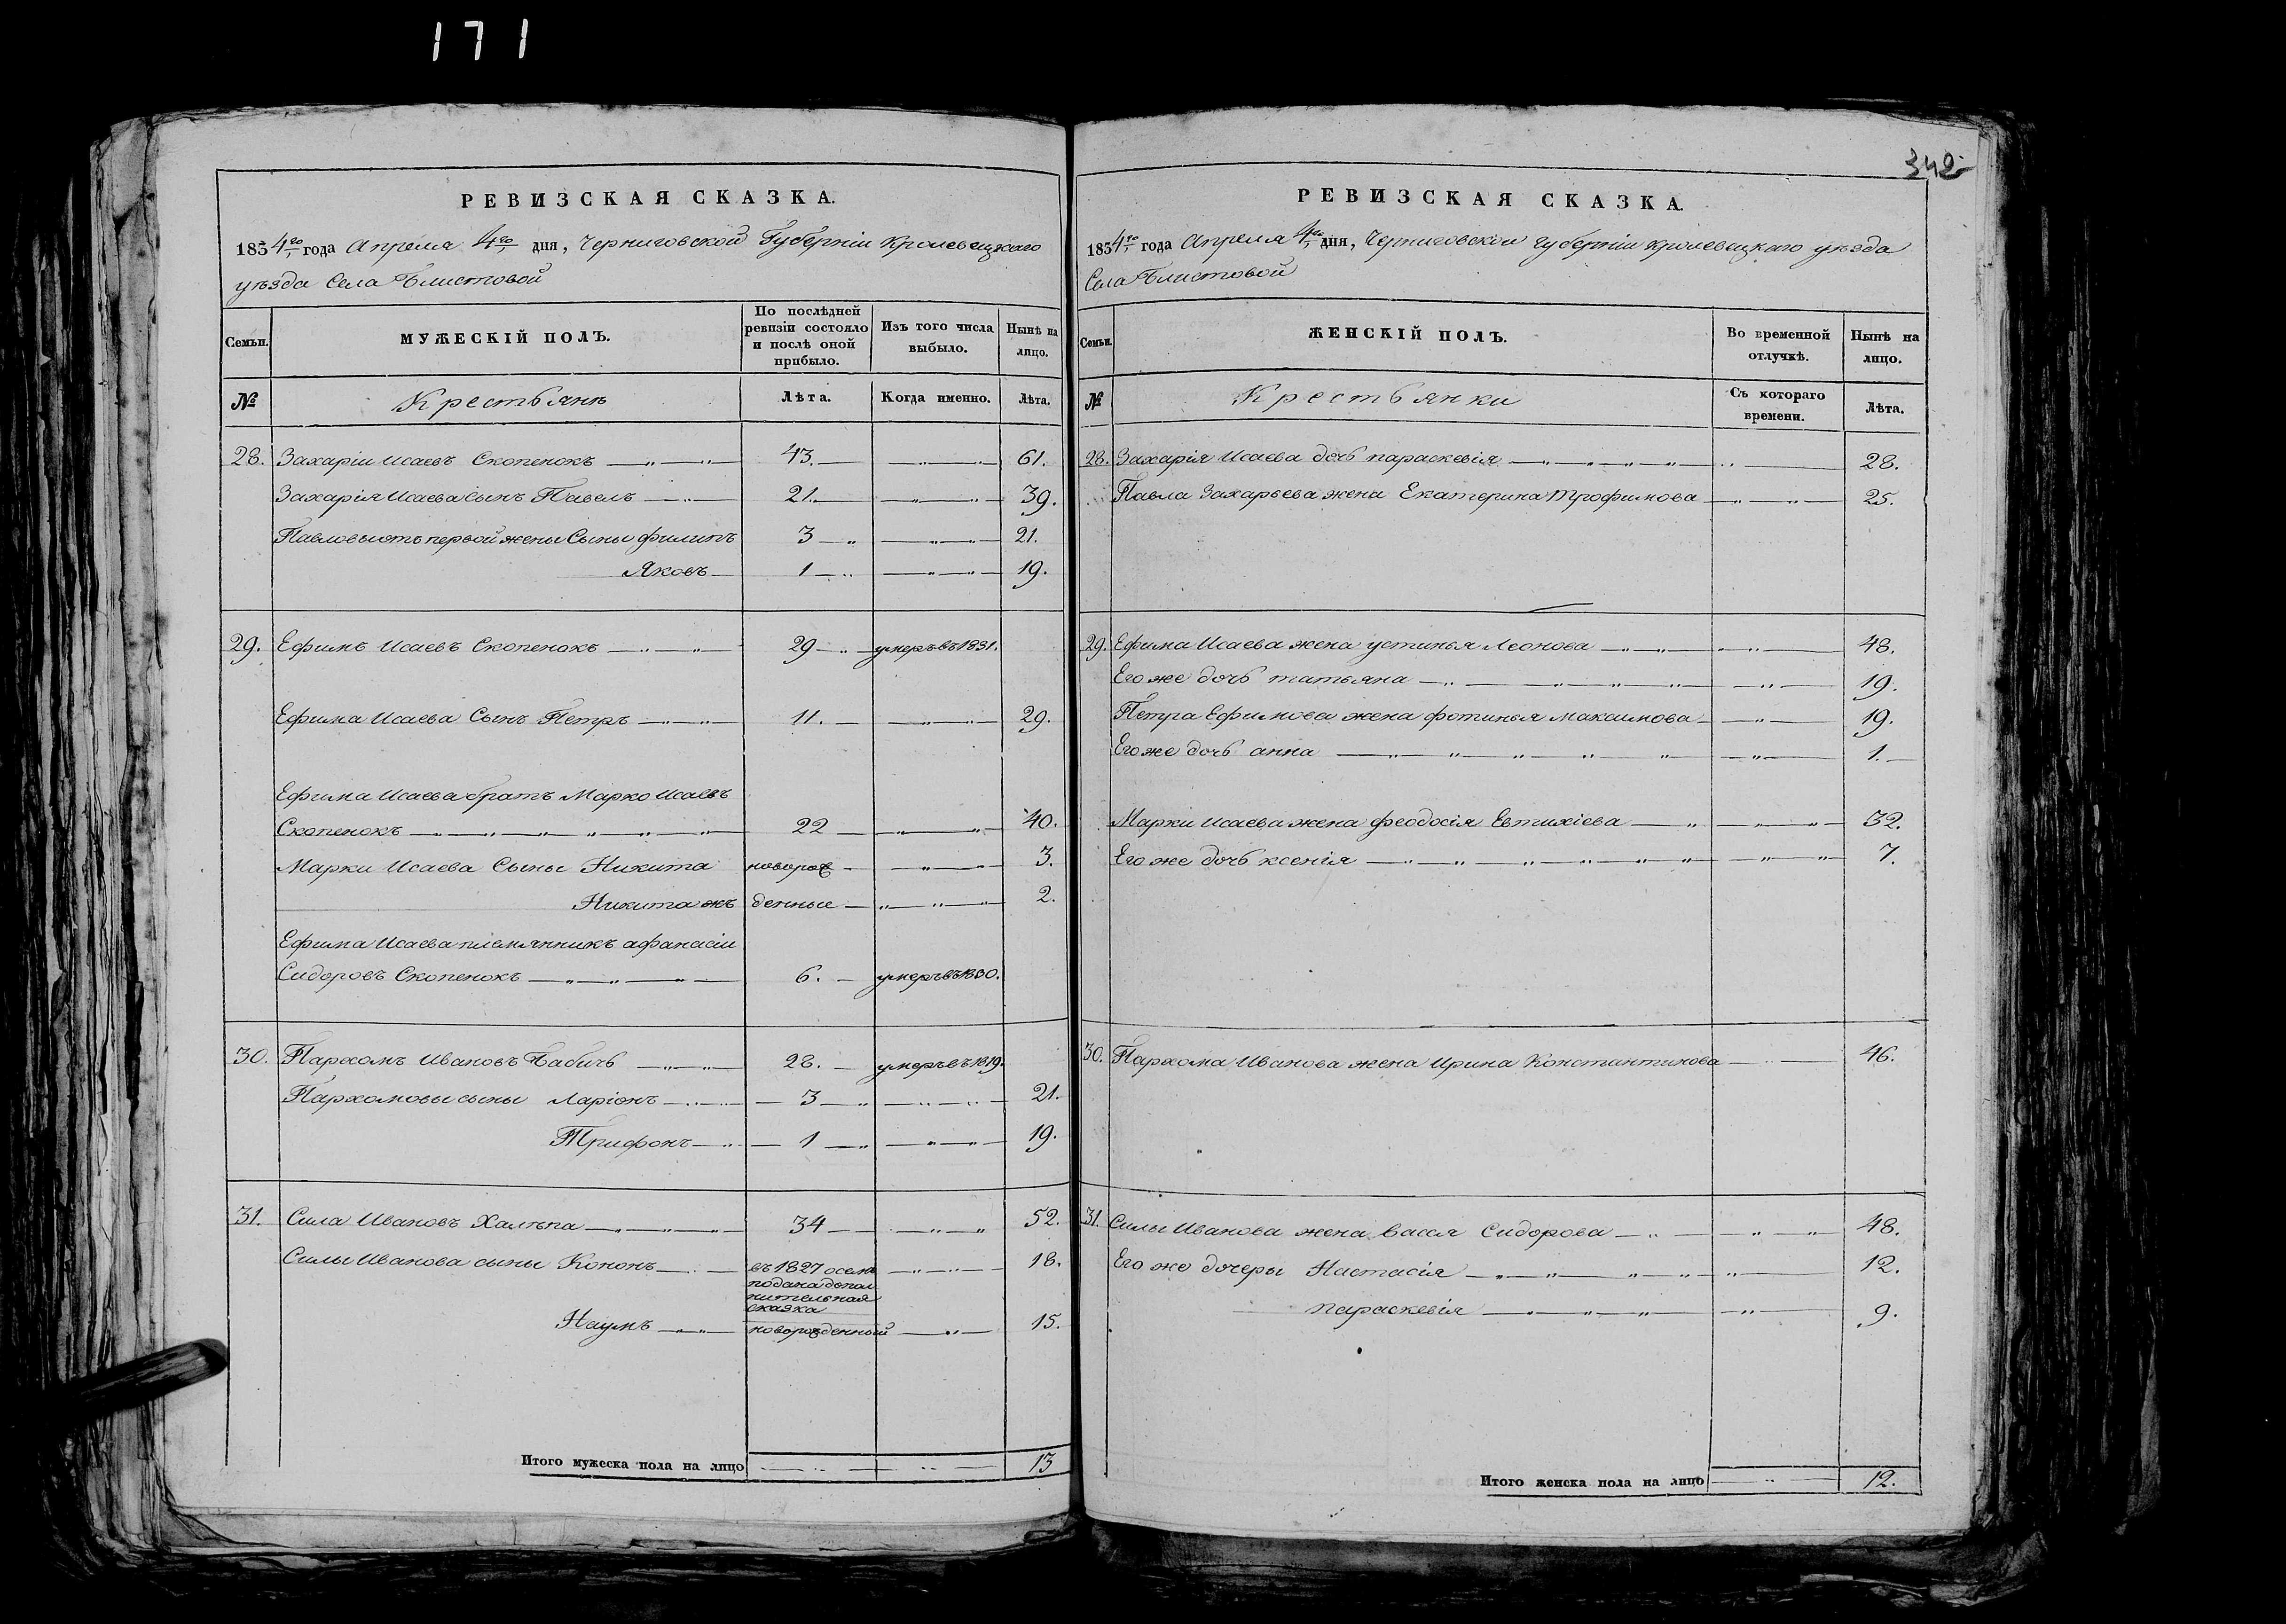 171
342
РЕВИЗСКАЯ СКАЗКА.
1854го года Апреля 4го дня, Черниговской Губерніи Кролевецкаго
уѣзда Села Блистовой
Семьи. МУЖЕСКІЙ ПОЛЪ. По послѣдней ревизіи состояло и послѣ оной прибыло. Изъ того числа выбыло. Нынѣ на лицо.
№ Крестьянъ Лѣта. Когда именно. Лѣта.
28. Захарій Исаевъ Скопенокъ 43. 61.
Захарія Исаева сынъ Павелъ 21. 39.
Павловы отъ первой жены Сыны филипъ 3 21.
Яковъ 1 19.
29. Ефимъ Исаевъ Скопенокъ 29 умеръ въ 1831.
Ефима Исаева Сынъ Петръ 11. 29.
Ефима Исаева братъ Марко Исаевъ
Скопенокъ 22 40.
Марки Исаева Сыны Никита новорож 3.
Никита жъ денные 2.
Ефима Исаева племянникъ афанасій
Сидоровъ Скопенокъ 6. умеръ въ
30. Пархомъ Ивановъ Бабичь 28. умеръ въ
Пархомовы сыны Ларіонъ 3 21.
Трифонъ 1 19.
31. Сила Ивановъ Халѣпа 34 52.
Силы Иванова сыны Кононъ въ 1827 18.
подана допол
нительная
сказка
Наумъ новорожденный 15.
Итого мужеска пола на лицо 13
РЕВИЗСКАЯ СКАЗКА.
1854го года Апреля 4го дня, Черниговской губерніи Кролевецкаго уѣзда
Села Блистовой
Семьи. ЖЕНСКІЙ ПОЛЪ. Во временной отлучкѣ. Нынѣ на лицо.
№ Крестьянки Съ котораго времени. Лѣта.
28. Захарія Исаева дочь параскевія 28.
Павла Захарьева жена Екатерина трофимова 25.
29. Ефима Исаева жена устинья Леонова 48.
Его же дочь татьяна 19.
Петра Ефимова жена фотинья максимова 19.
Его же дочь анна 1.
Марки Исаева жена феодосія Евтихіева 32.
Его же дочь ксенія 7.
30. Пархома Иванова жена Ирина Константинова 46.
31. Силы Иванова жена васся Сидорова 48.
Его же дочеры Настасія 12.
параскевія 9.
Итого женска пола на лицо 12.